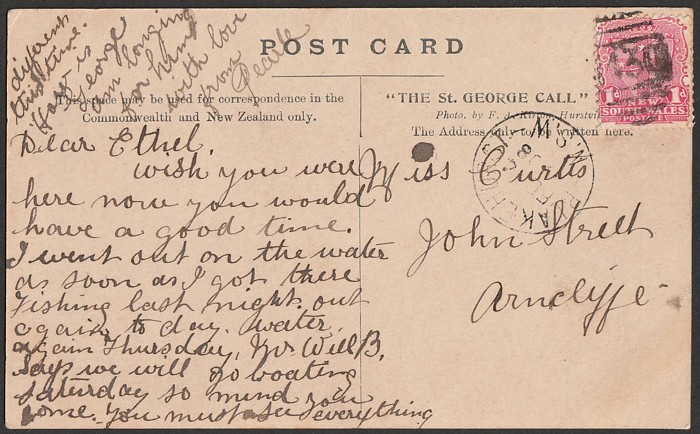 POST CARD
This space may be used for correspondence in the
Commonwealth and New Zealand only.
"THE St. GEORGE CALL"
Photo. by F. A. Hurstvi
The Address only to be written here.
1d 1d
NEW
SOUTH WALES
POSTAGE
N.S.W
Dear Ethel.
wish you were
here now you would
have a good time.
I went out on the water
as soon as I got there
Fishing last night. out
again to day. water
again Thursday, Mr Will B.
says we will go boating
Saturday so mind you
come. you must see everything
different
this time.
How is
George
I am longing
for him
with love
from
Miss Curtis
John Street
Arncliffe